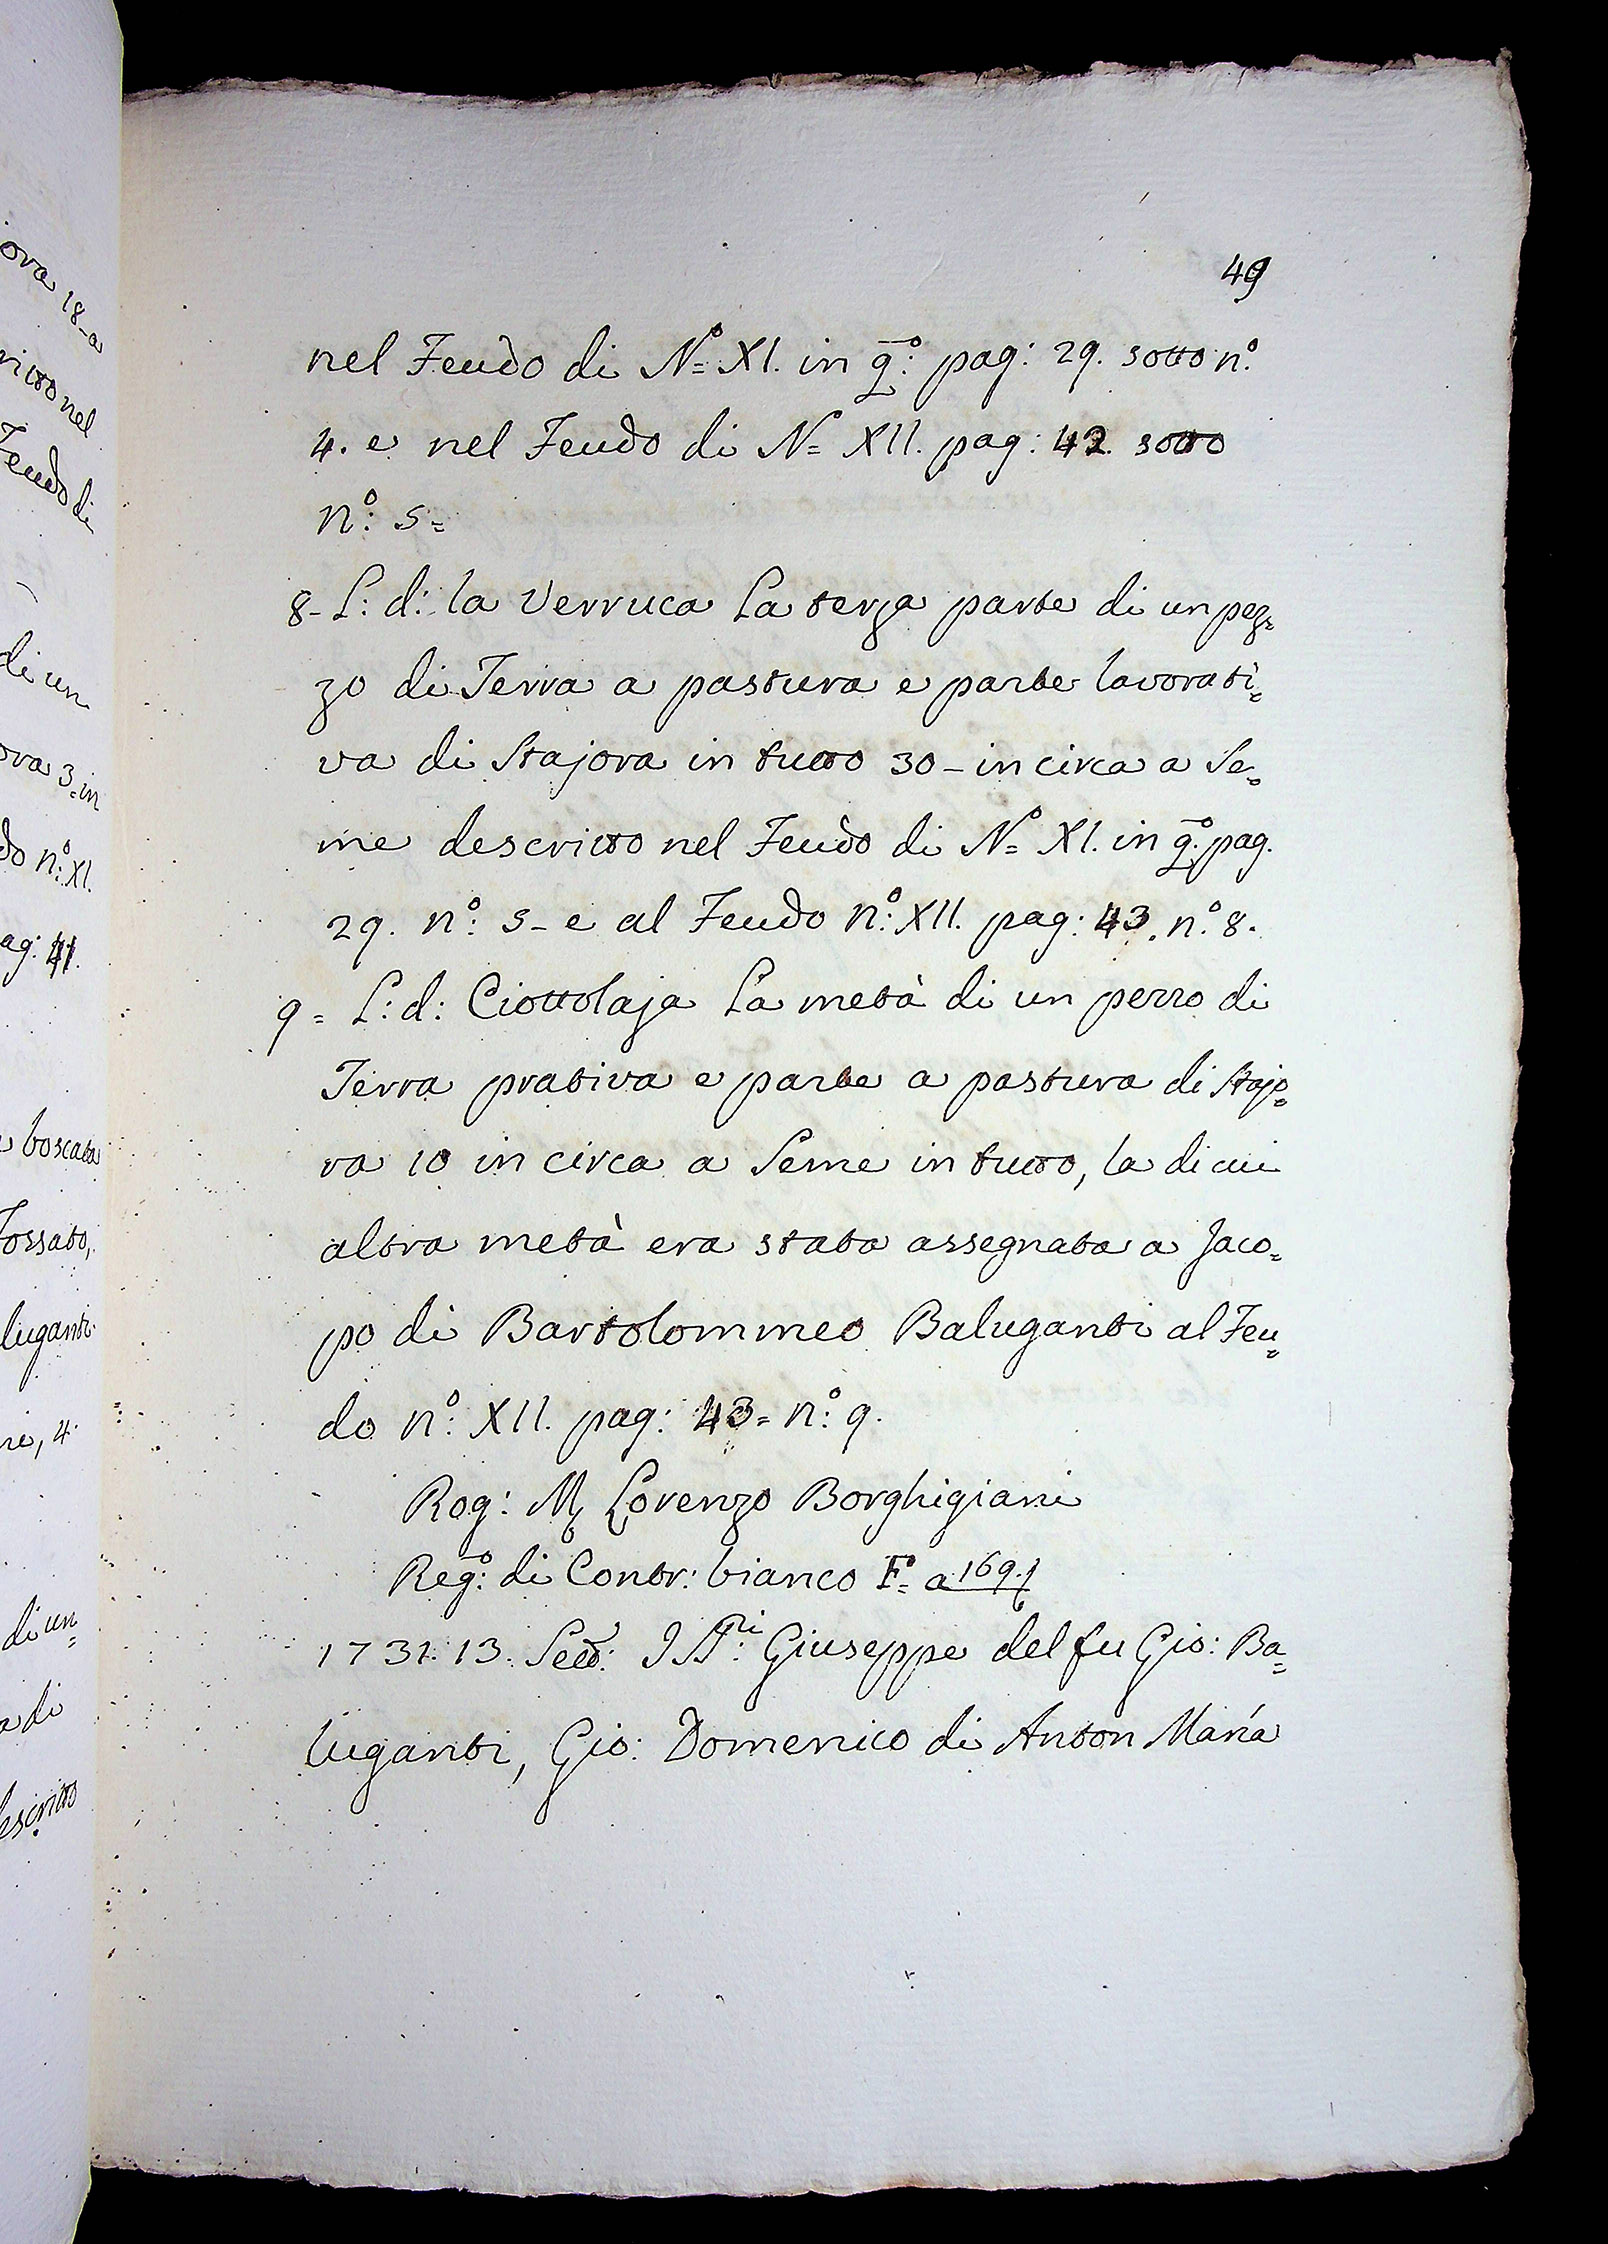 49
nel Feudo di N.º XI. in q.º: pag: 29. sotto n.º
4. e nel Feudo di N.º XII. pag: 42. sotto
n.º: 5=
8- L: d: la Verruca La terza parte di un pez=
zo di Terra a pastura e parte lavorati=
va di Stajora in tutto 30- in circa a Se=
me descritto nel Feudo di N.º XI. in q.º. pag.
29. n.º: 5- e al Feudo n.º: XII. pag: 43. n.º. 8.
9= L: d: Ciottolaja La metà di un pezzo di
Terra prativa e parte a pastura di Stajo=
ra 10 in circa a Seme in tutto, la di cui
altra metà era stata assegnata a Jaco=
po di Bartolommeo Baluganti al Feu=
do n.º: XII. pag: 43= n.º: 9.
Rog: M. Lorenzo Borghigiani
Reg.º: di Contr: bianco F.º a 169.
1731. 13. Giuseppe del fu Gio: Ba=
luganti, Gio: Domenico di Anton Maria
ova 18-a
ritto nel
Feudo di
di un
ova 3=in
do n.º: XI.
ag: 41.
boscata
Fossato,
luganti
re, 4.
di un=
a di
descritto